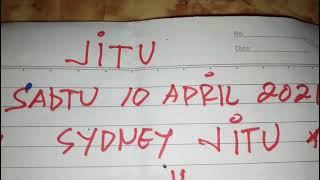 No.
Date
JiTU
SABTU 10 APRiL 2021
SYDNEY JiTU *